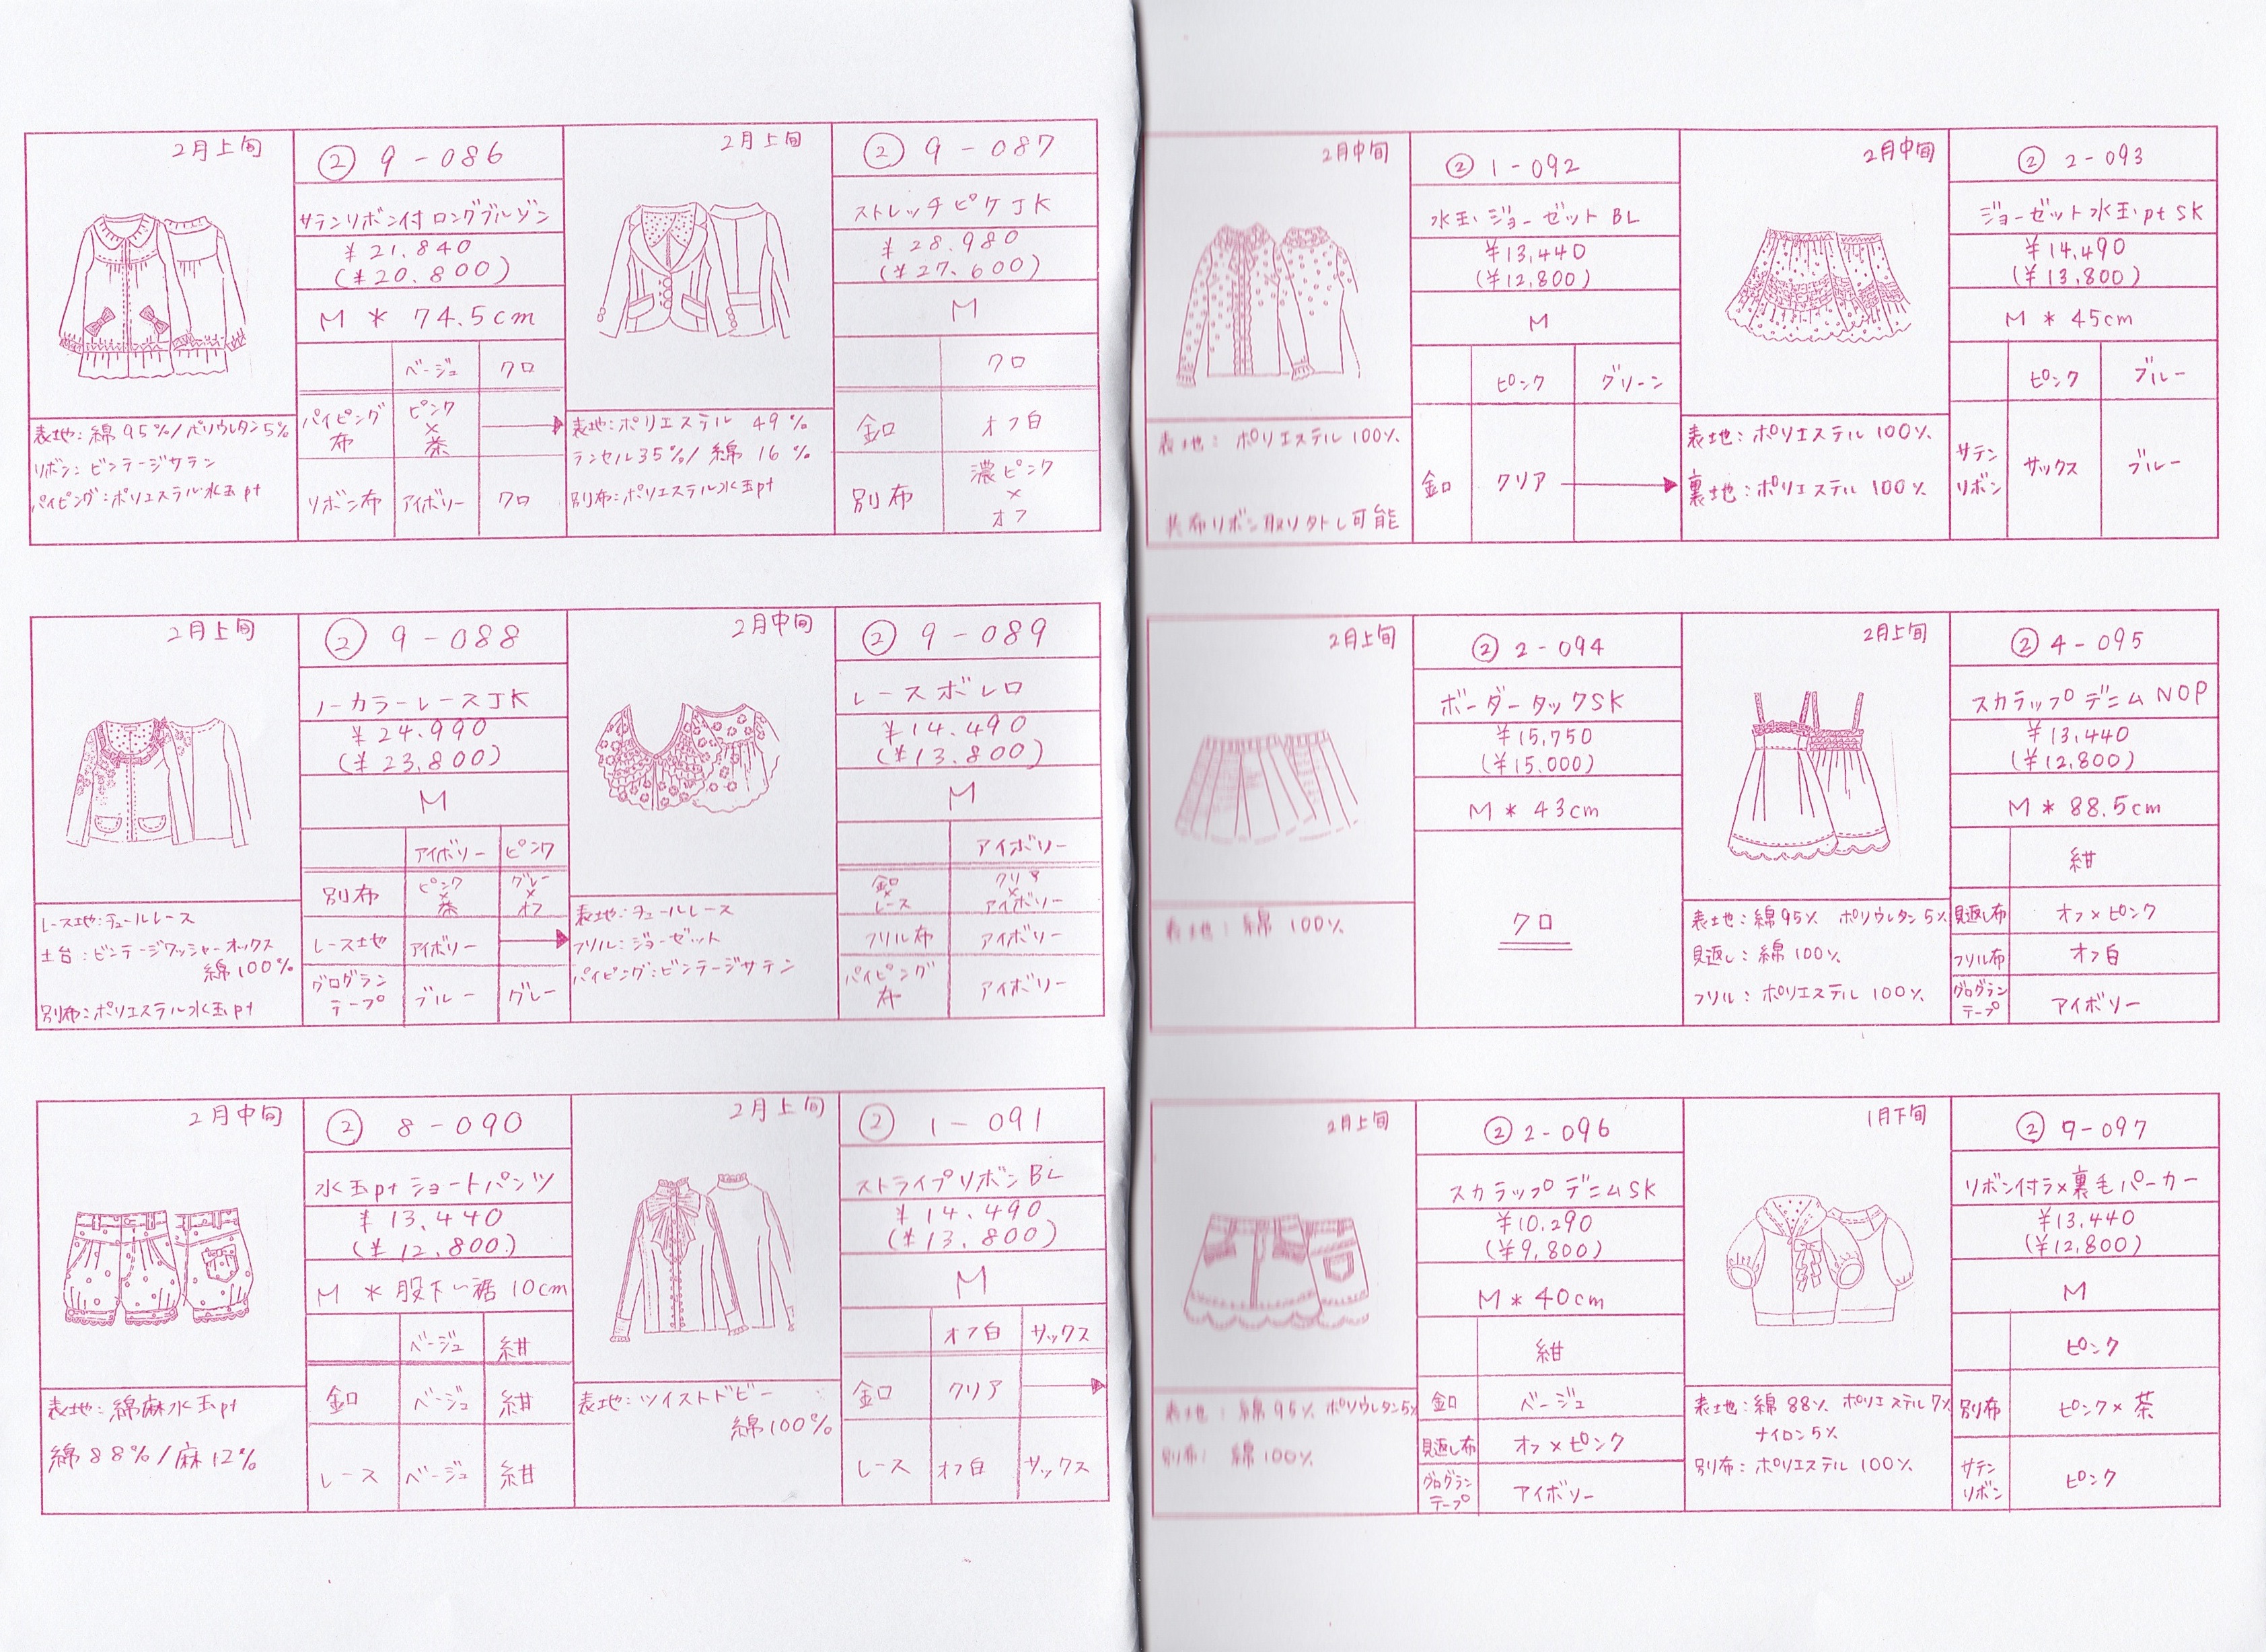 2月上旬
② 9-086
サテンリボン付ロングブルゾン
¥21.840
(¥20.800)
M * 74.5cm
ベージュ クロ
パイピング布 ピンク×茶 →
リボン布 アイボリー クロ
表地:綿95%/ポリウレタン5%
リボン:ビンテージサテン
パイピング:ポリエステル水玉pt
2月上旬
② 9-087
ストレッチピケJK
¥28.980
(¥27.600)
M
クロ
釦 オフ白
別布 濃ピンク×オフ
表地:ポリエステル 49%
ランセル35%/綿16%
別布:ポリエステル水玉pt
2月上旬
② 9-088
ノーカラーレースJK
¥24.990
(¥23.800)
M
アイボリー ピンク
別布 ピンク×茶 グレー×オフ
レース地 アイボリー →
グログランテープ ブルー グレー
レース地:チュールレース
土台:ビンテージワッシャーオックス
綿100%
別布:ポリエステル水玉pt
2月中旬
② 9-089
レースボレロ
¥14.490
(¥13.800)
M
アイボリー
釦×レース クリア×アイボリー
フリル布 アイボリー
パイピング布 アイボリー
表地:チュールレース
フリル:ジョーゼット
パイピング:ビンテージサテン
2月中旬
② 8-090
水玉ptショートパンツ
¥13.440
(¥12.800)
M *股下〜裾10cm
ベージュ 紺
釦 ベージュ 紺
レース ベージュ 紺
表地:綿麻水玉pt
綿88%/麻12%
2月上旬
② 1-091
ストライプリボンBL
¥14.490
(¥13.800)
M
オフ白 サックス
釦 クリア →
レース オフ白 サックス
表地:ツイストドビー
綿100%
2月中旬
② 1-092
水玉ジョーゼットBL
¥13,440
(¥12,800)
M
ピンク グリーン
釦 クリア →
表地:ポリエステル100%
共布リボン取りタトし可能
2月中旬
② 2-093
ジョーゼット水玉pt SK
¥14,490
(¥13,800)
M * 45cm
ピンク ブルー
サテンリボン サックス ブルー
表地:ポリエステル100%
裏地:ポリエステル100%
2月上旬
② 2-094
ボーダータックSK
¥15,750
(¥15.000)
M * 43cm
クロ
表地:綿100%
2月上旬
② 4-095
スカラップデニムNOP
¥13,440
(¥12,800)
M * 88.5cm
紺
見返し布 オフ×ピンク
フリル布 オフ白
グログランテープ アイボリー
表地:綿95% ポリウレタン5%
見返し:綿100%
フリル:ポリエステル100%
2月上旬
② 2-096
スカラップデニムSK
¥10,290
(¥9,800)
M * 40cm
紺
釦 ベージュ
見返し布 オフ×ピンク
グログランテープ アイボリー
表地:綿95% ポリウレタン5%
別布:綿100%
1月下旬
② 9-097
リボン付ラメ裏毛パーカー
¥13,440
(¥12,800)
M
ピンク
別布 ピンク×茶
サテンリボン ピンク
表地:綿88% ポリエステル7%
ナイロン5%
別布:ポリエステル100%